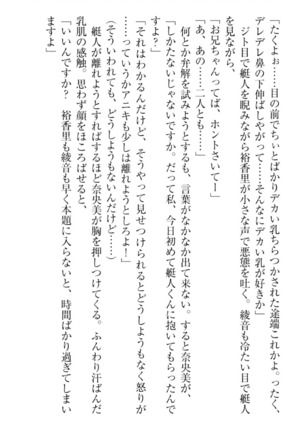 「たくよぉ……目の前でちぃとばかりデカい乳ちらつかされた途端これかよ。ったく、
デレデレ鼻の下伸ばしやがって……そんなにデカい乳が好きか」
ジト目で艇人を睨みながら裕香里が小さな声で悪態を吐く。綾音も冷たい目で艇人
を見ながら、
「お兄ちゃんってば、ホントさいてー」
「あ、あの……二人とも……」
何とか弁解を試みようとするも、言葉がなかなか出て来ない。すると奈央美が、
「しかたないじゃないですか。だって私、今日初めて艇人くんに抱いてもらったんで
すよ？」
「それはわかるんだけど、そうやって見せつけられるとどうしようもなく怒りが
……っていうかアニキも少しは離れようとしろよ！」
（そういわれても、どうしようもないんだけど……）
艇人が離れようとすればするほど奈央美が胸を押しつけてくる。ふんわり汗ばんだ
乳肌の感触。思わず顔をほころばせると、
「いいんですか？　裕香里も綾音も早く本題に入らないと、時間ばかり過ぎてしまい
ますよ」